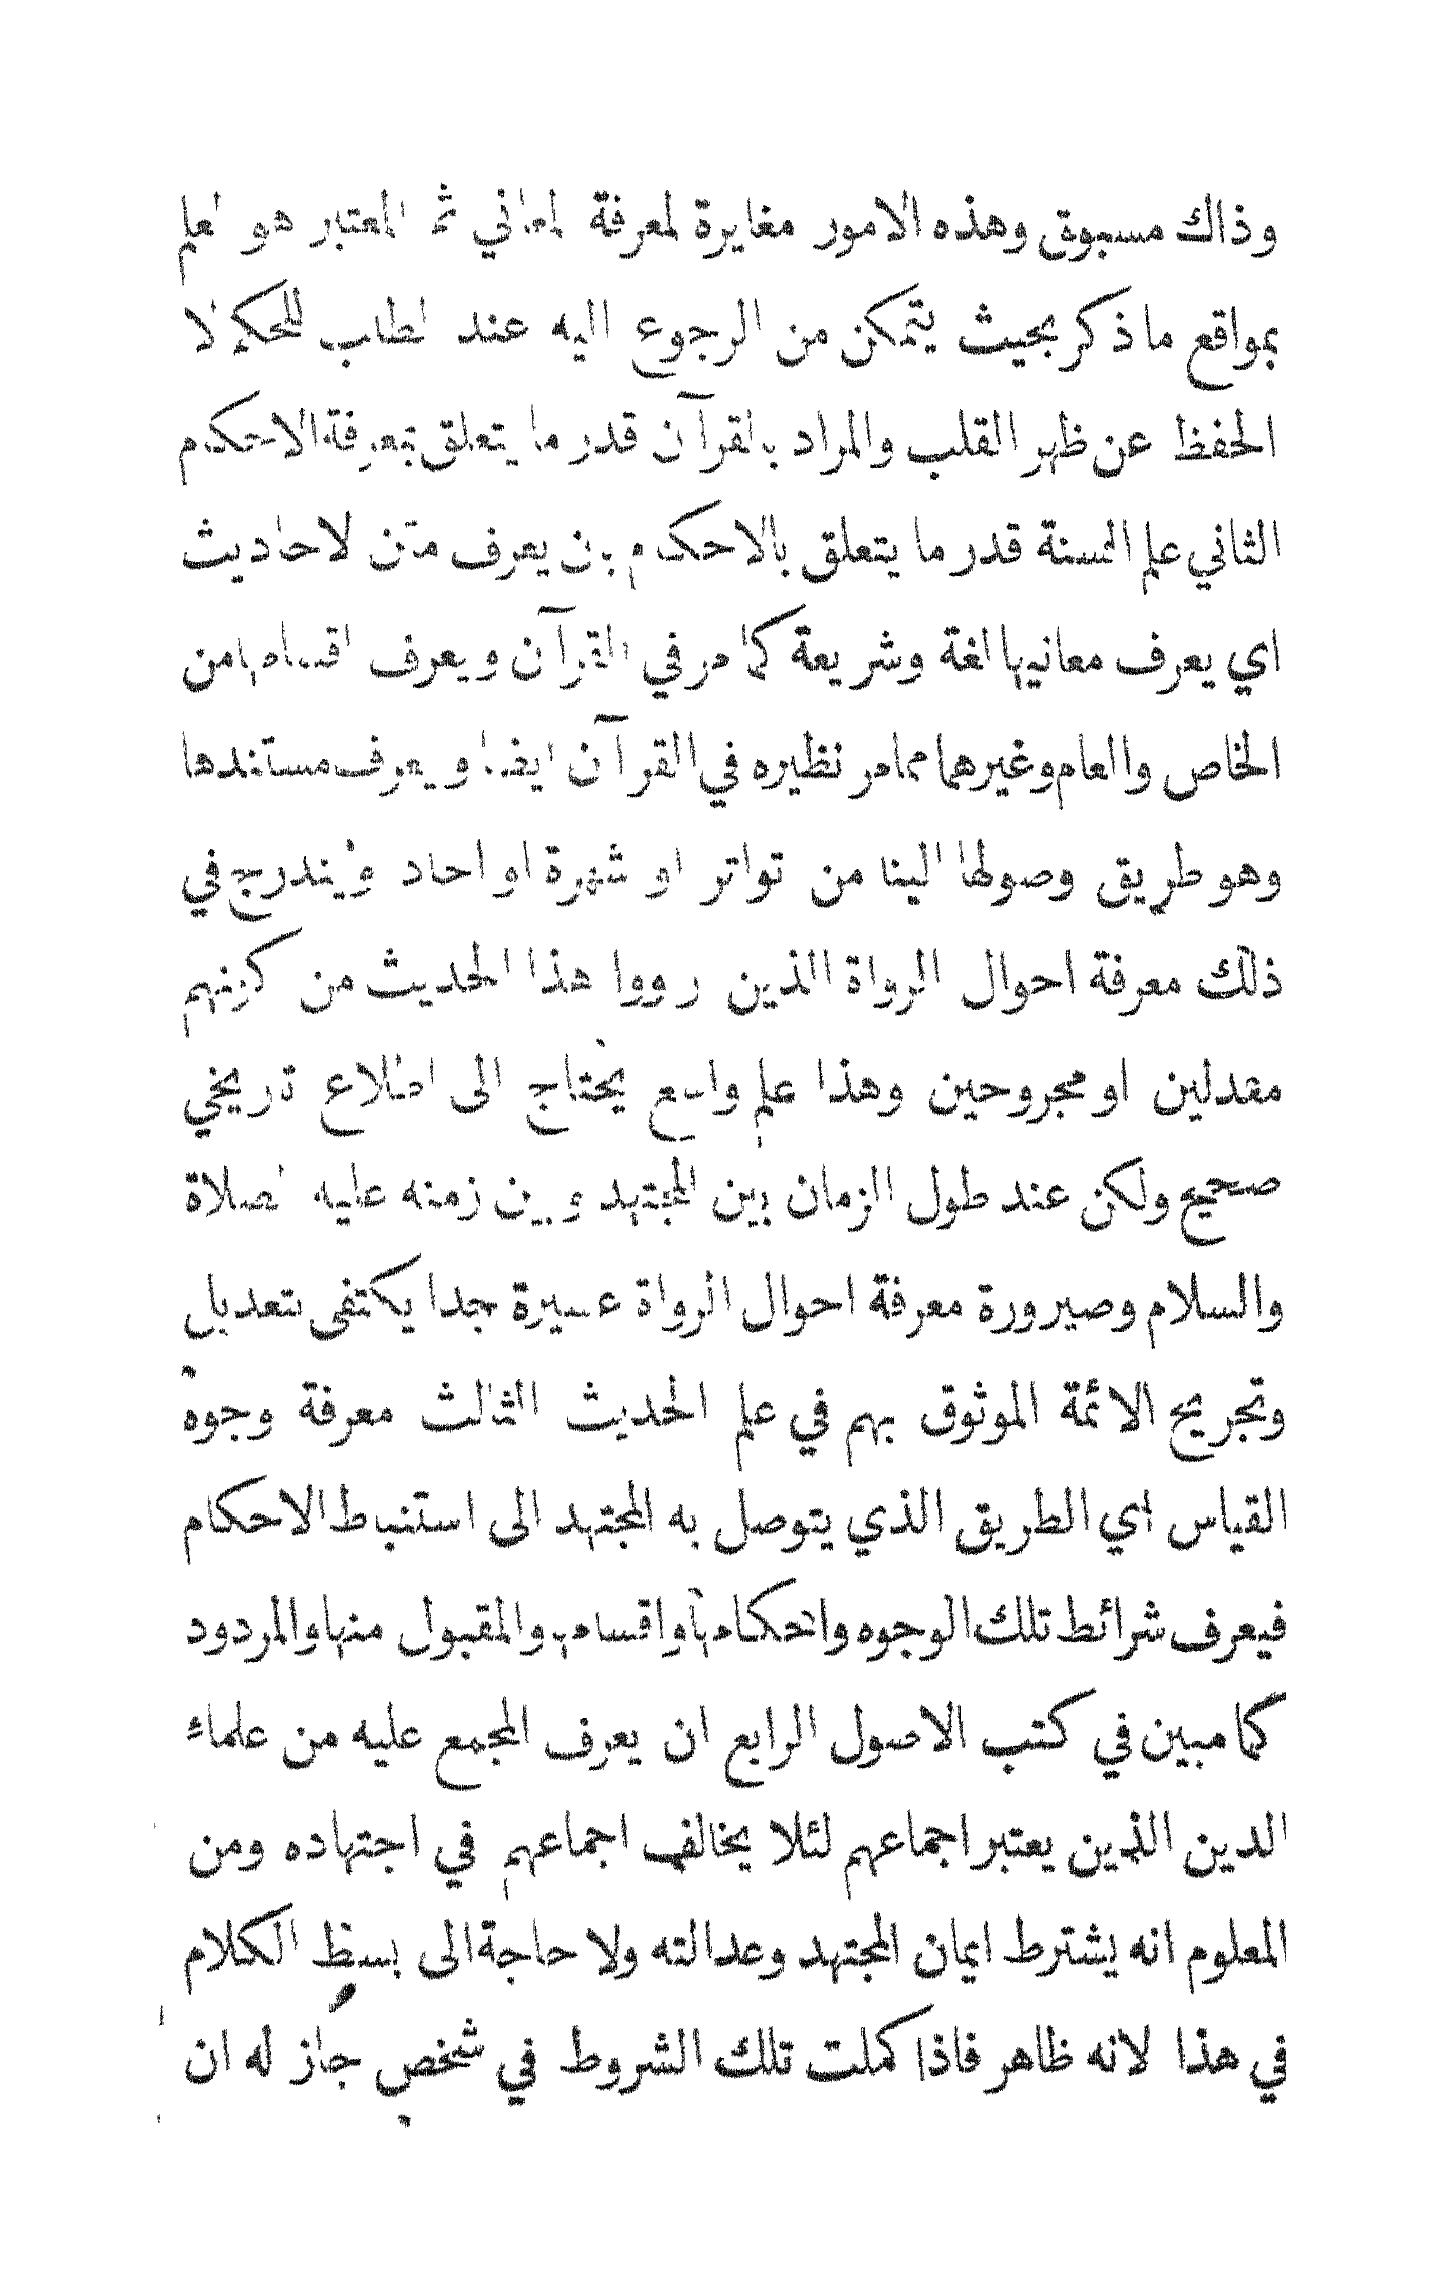 وذاك مسبوق وهذه الامور مغايرة لمعرفة المعاني ثم المعتبر هو العلم
بمواقع ما ذكر بحيث يتمكن من الرجوع اليه عند الطلب للحكم لا
الحفظ عن ظهر القلب والمراد بالقرآن قدر ما يتعلق بمعرفة الاحكام
الثاني علم السنة قدر ما يتعلق بالاحكام بان يعرف متن الاحاديث
اي يعرف معانيها لغة وشريعة كما مر في القرآن ويعرف اقسامها من
الخاص والعام وغيرهما مما مر نظيره في القرآن ايضا ويعرف مستندها
وهو طريق وصولها الينا من تواتر او شهرة او احاد ويندرج في
ذلك معرفة احوال الرواة الذين رووا هذا الحديث من كونهم
مقدلين او مجروحين وهذا علم واسع يحتاج الى اطلاع تاريخي
صحيح ولكن عند طول الزمان بين المجتهد وبين زمنه عليه الصلاة
والسلام وصيرورة معرفة احوال الرواة عسيرة جدا يكتفى بتعديل
وتجريح الائمة الموثوق بهم في علم الحديث الثالث معرفة وجوه
القياس اي الطريق الذي يتوصل به المجتهد الى استنباط الاحكام
فيعرف شرائط تلك الوجوه واحكامها واقسامها والمقبول منها والمردود
كما مبين في كتب الاصول الرابع ان يعرف المجمع عليه من علماء
الدين الذين يعتبر اجماعهم لئلا يخالف اجماعهم في اجتهاده ومن
المعلوم انه يشترط ايمان المجتهد وعدالته ولا حاجة الى بسط الكلام
في هذا لانه ظاهر فاذا كملت تلك الشروط في شخص جاز له ان